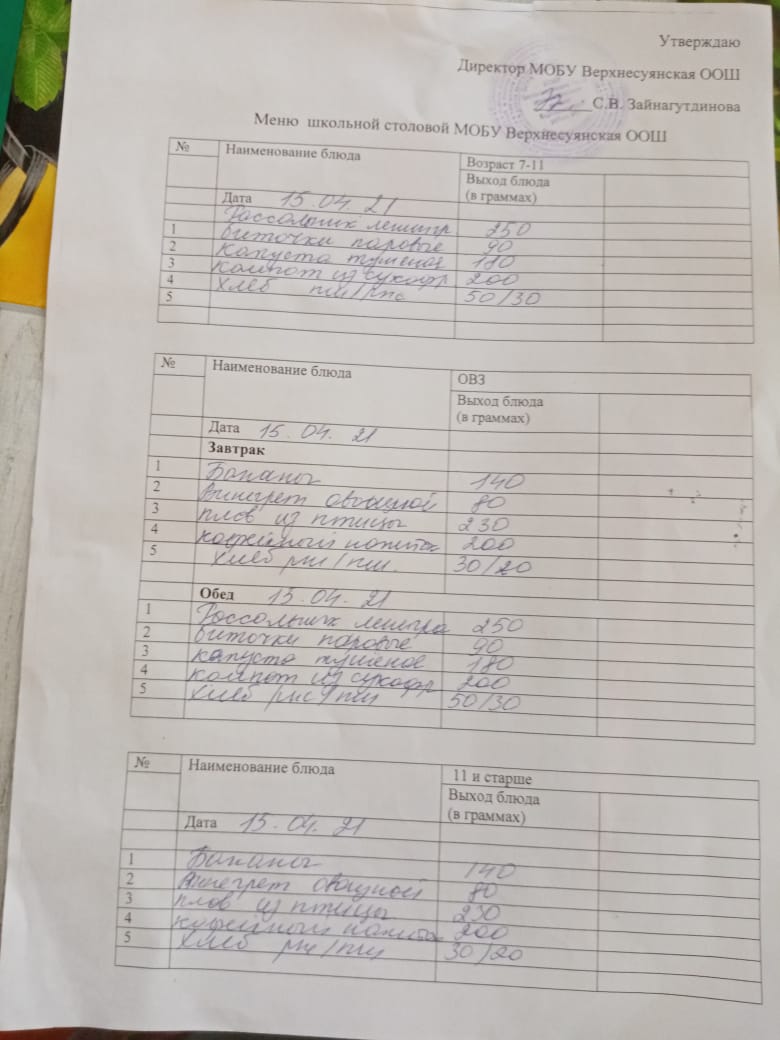 Утверждаю
Директор МОБУ Верхнесуянская ООШ
С.В. Зайнагутдинова
Меню школьной столовой МОБУ Верхнесуянская ООШ
№ Наименование блюда Возраст 7-11
Выход блюда
(в граммах)
Дата 15.04 21
1 Рассольник ленингр 250
2 Биточки паровые 90
3 Капуста тушеная 180
4 Компот из сухофр 200
5 Хлеб пш/рж 50/30
№ Наименование блюда ОВЗ
Выход блюда
(в граммах)
Дата 15.04.21
Завтрак
1 Бананы 140
2 Винегрет овощной 80
3 плов из птицы 230
4 кофейный напиток 200
5 Хлеб рж/пш. 30/20
Обед 15.04.21
1 Рассольник ленингра 250
2 биточки паровые 90
3 капуста тушеное 180
4 компот из сухофр 200
5 Хлеб рж/пш 50/30
№ Наименование блюда 11 и старше
Выход блюда
(в граммах)
Дата 15.04.21
1 Бананы 140
2 Винегрет овощной 80
3 плов из птицы 230
4 кофейный напиток 200
5 Хлеб рж/пш 30/20